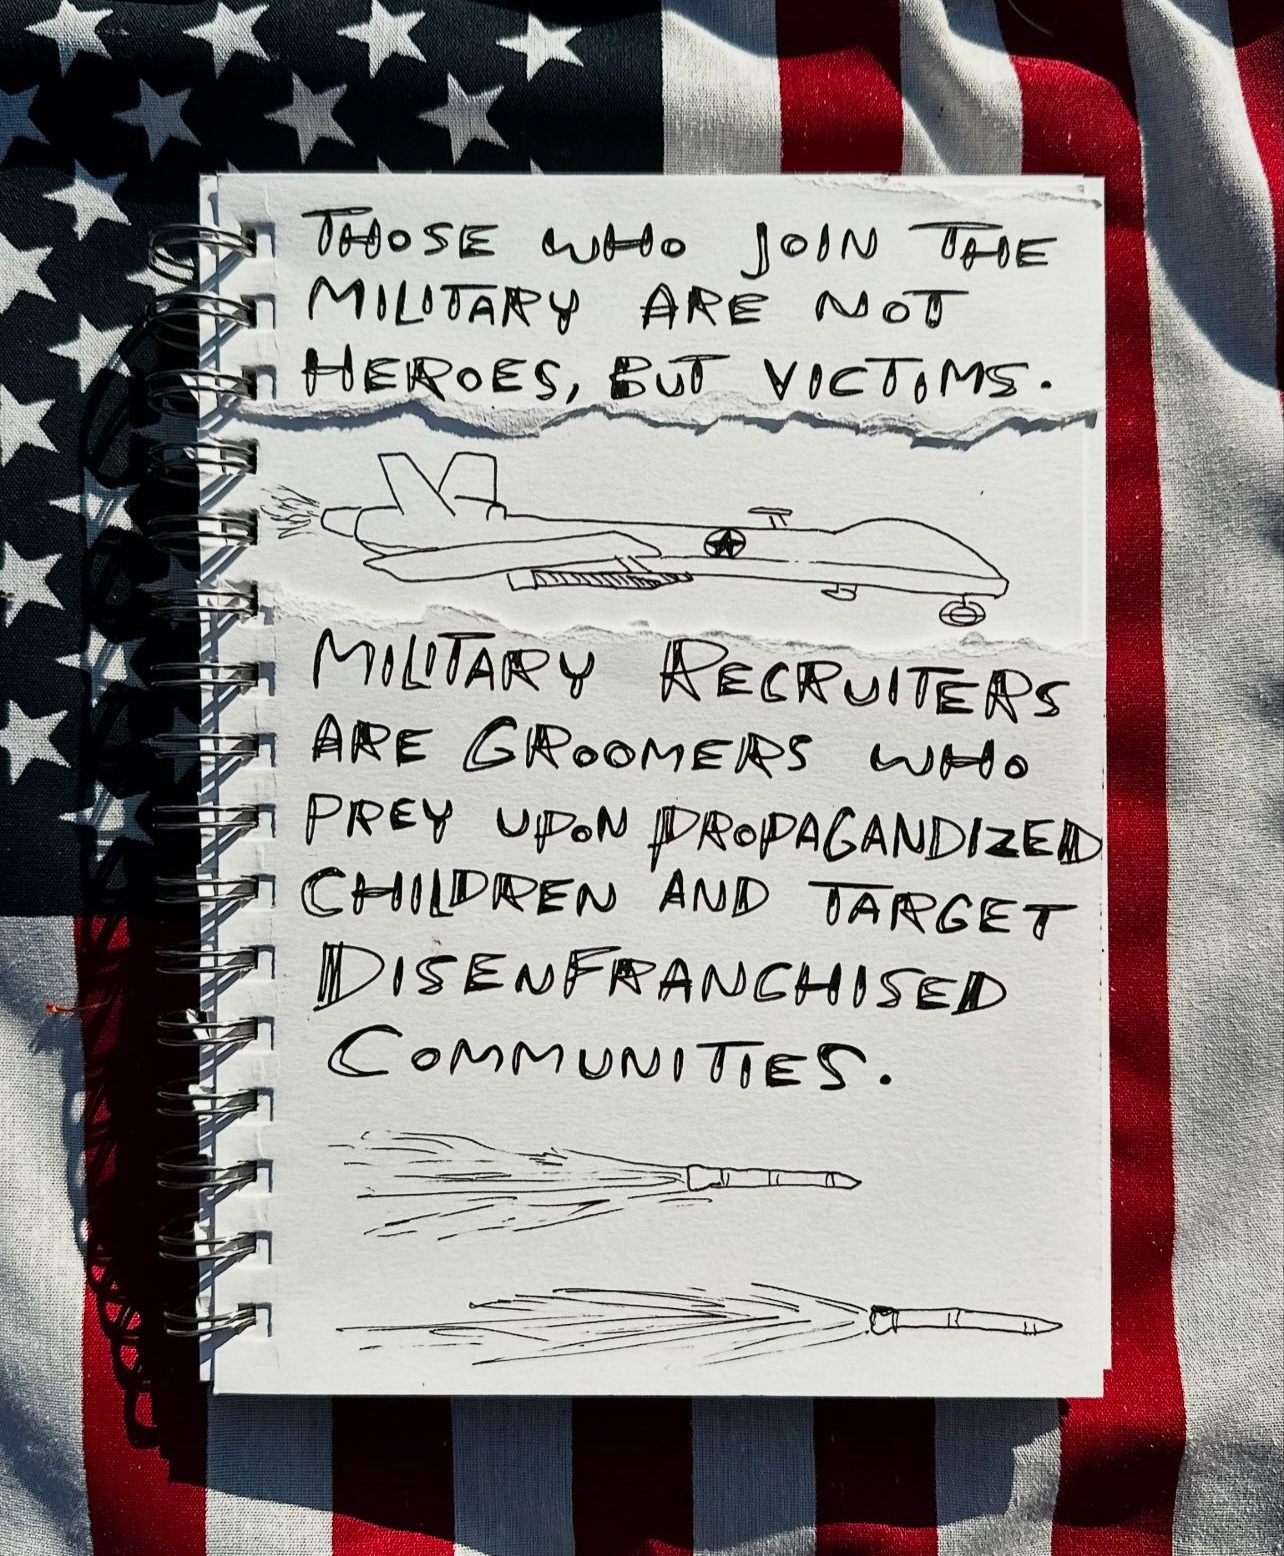 THOSE WHO JOIN THE
MILITARY ARE NOT
HEROES, BUT VICTIMS.
MILITARY RECRUITERS
ARE GROOMERS WHO
PREY UPON PROPAGANDIZED
CHILDREN AND TARGET
DISENFRANCHISED
COMMUNITIES.